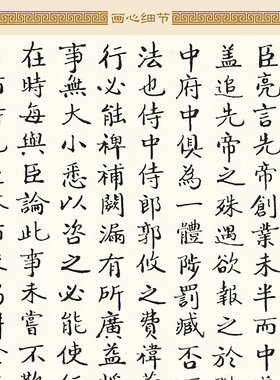 画心细节
臣亮言先帝創業未半而中
蓋追先帝之殊遇欲報之於
中府中俱為一體陟罰臧否
法也侍中侍郎郭攸之費禕
行必能裨補闕漏有所廣益
事無大小悉以咨之必能使行
在時每與臣論此事未嘗不歎